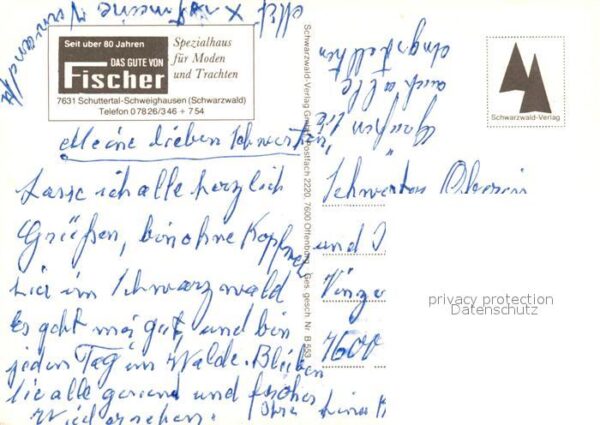 Seit über 80 Jahren
DAS GUTE VON
Fischer
Spezialhaus
für Moden
und Trachten
7631 Schuttertal-Schweighausen (Schwarzwald)
Telefon 07826/346 + 754
Schwarzwald-Verlag GmbH, Postfach 2220, 7600 Offenburg, Ges. gesch. Nr. B 553
Schwarzwald-Verlag
Meine lieben Schwestern
Lasse ich alle herzlich
Grüßen, bin ohne Kopfweh
hier im Schwarzwald
Es geht mir gut, und bin
jeden Tag im Walde. Bleiben
Sie alle gesund und
Wiedersehen. Ihre Lina K
Grüßen Sie
auch alle
Angestellten
meine
Schwester Oberin
und
Vinze
7600
privacy protection
Datenschutz